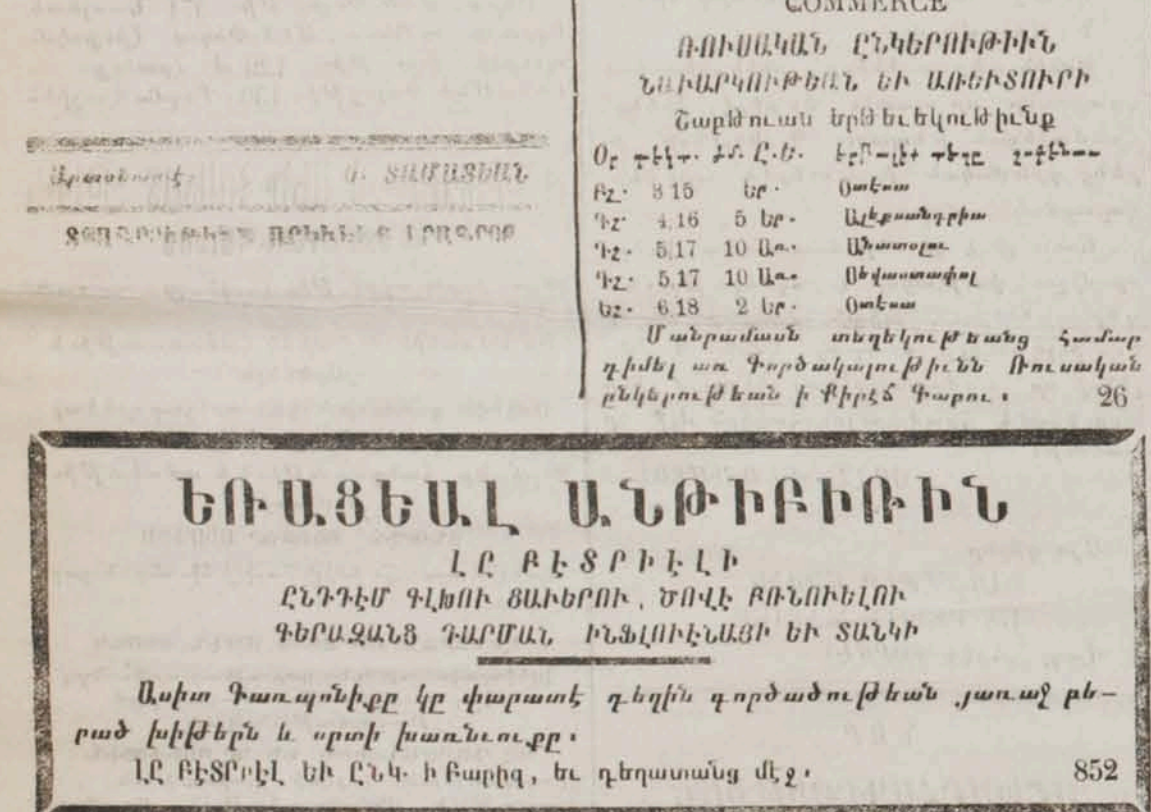 COMMERCE
ՌՈՒՍԱԿԱՆ ԸՆԿԵՐՈՒԹԻՒՆ
ՆԱՒԱՐԿՈՒԹԵԱՆ ԵՒ ԱՌԵՒՏՈՒՐԻ
Շաբթուան երթեւեկութիւնք
Բշ. 3 15 Եր. Օտէսա
Գշ. 4.16 5 Եր. Ալեքսանդրիա
Դշ. 5.17 10 Առ. Անատօլու
Դշ. 5.17 10 Առ. Սեվաստափոլ
Եշ. 6.18 2 Եր. Օտէսա
Մանրամասն տեղեկութեանց համար
դիմել առ Գործակալութիւնն Ռուսական
ընկերութեան ի Քիրէճ Գաբու. 26
Արտօնատէր Ս. ՏԱՄԱՏԵԱՆ
ԵՌԱՑԵԱԼ ԱՆԹԻԲԻՌԻՆ
ԼԸ ԲԷՏՐԻԷԼԻ
ԸՆԴԴԷՄ ԳԼԽՈՒ ՑԱՒԵՐՈՒ, ԾՈՎԷ ԲՌՆՈՒԵԼՈՒ
ԳԵՐԱԶԱՆՑ ԴԱՐՄԱՆ ԻՆՖԼՈՒԷՆԱՅԻ ԵՒ ՏԱՆԿԻ
Ասիտ Գառպոնիքը կը փարատէ դեղին գործածութեան յառաջ բե–
րած խիթերն և սրտի խառնուքը.
ԼԸ ԲԷՏՐԻԷԼ ԵՒ ԸՆԿ. ի Բարիզ, եւ դեղատանց մէջ. 852